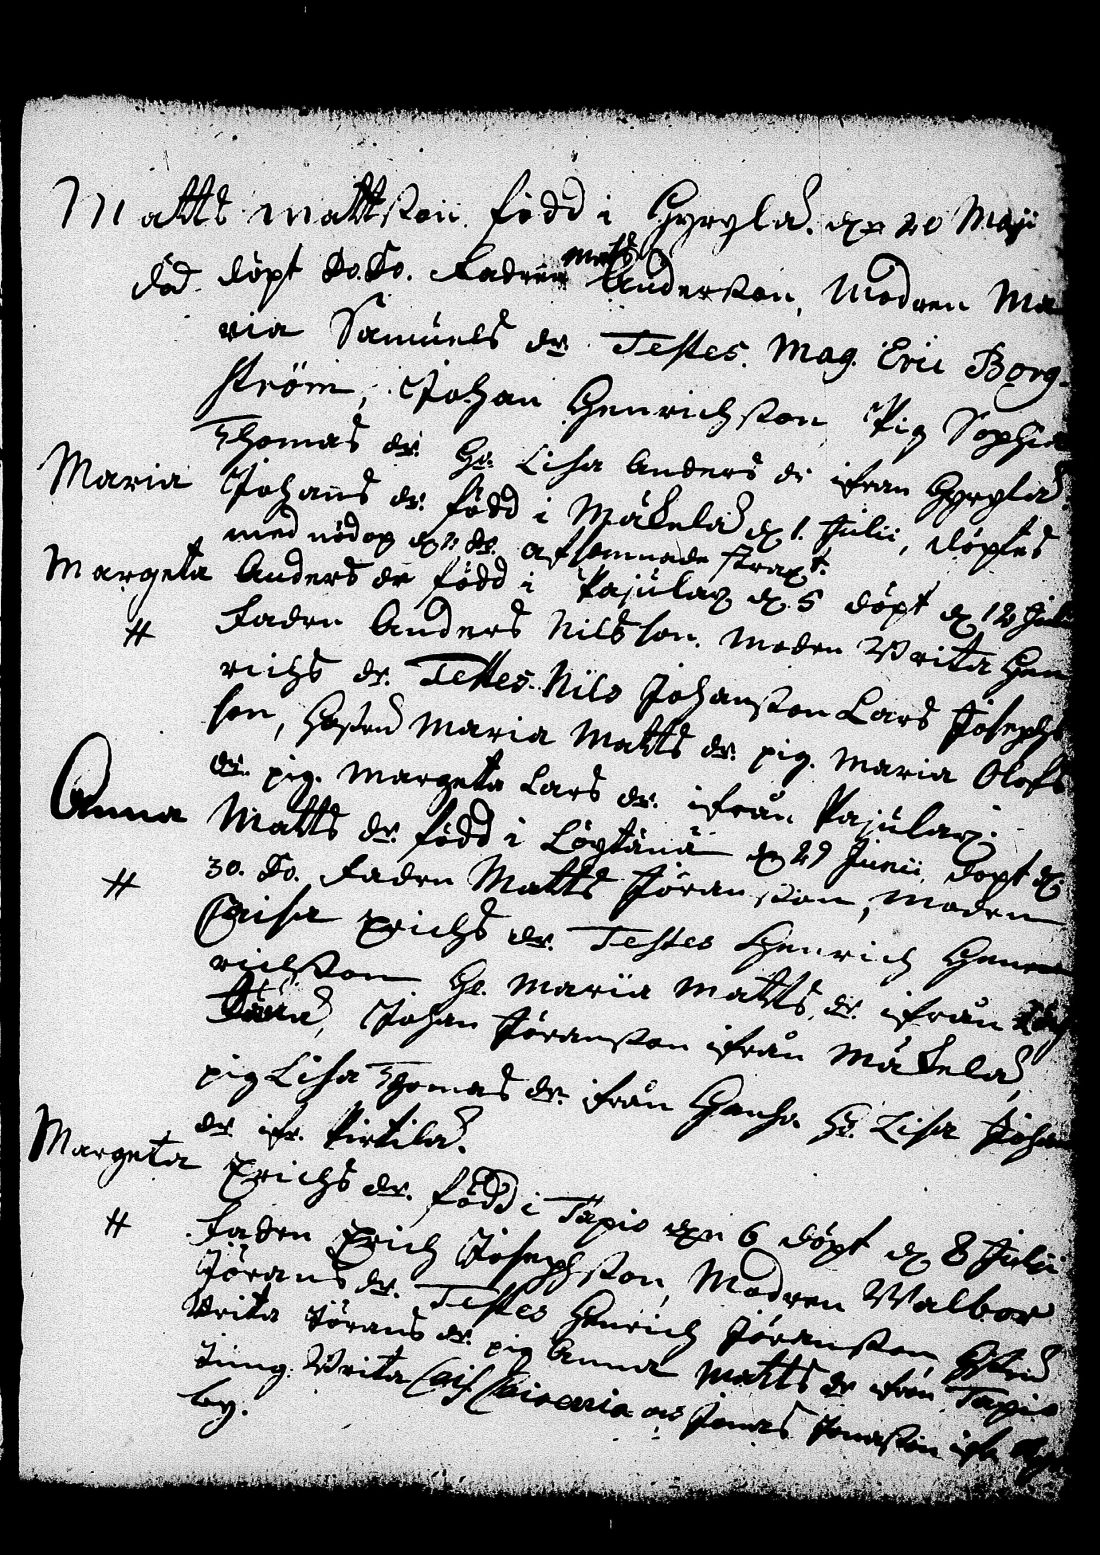 Matts Mattsson född i Hyrylä d. 20 Maji
död. döpt do. do. Fadren Matts Anderson, Modren Ma
ria Samuels dr. Testes. Mag. Eric Borg-
ström, Johan Henrichsson Pig Sophia
Thomas dr. H. Lisa Anders dr ifrån Hyrylä.
Maria Johans dr. född i Mäkelä d. 1. Julii, döptes
med nödop afsomnade strax.
Margeta Anders dr född i Pajula d. 5 döpt d. 12 Julii
# Fadren Anders Nilsson. Modren Brita Hen
richs dr. Testes. Nils Johansson Lars Josephs
son, Hustru Maria Matts dr. pig. Maria Olofs
dr. pig. Margeta Lars dr. ifrån Pajula.
Anna Matts dr. född i Löytänä d. 29 Junii, döpt d.
# 30. do. Fadren Matts Jöransson, Modren
Caisa Erichs dr. Testes Henrich Hen
richsson H. Maria Matts dr. ifrån Löy
tänä, Johan Jöransson ifrån Mäkelä,
pig Lisa Thomas dr. ifrån H. Lisa Johan
dr. ifr. Pirtilä.
Margeta Erichs dr. född i Tapio den 6 döpt d. 8 Julii
# Fadren Erich Josephsson, Modren Walbor
Jörans dr. Testes Henrich Jöransson Hustru
Brita Jörans dr. pig Anna Matts dr ifrån Tapio
Jung. Brita Jonas Jonasson ifr.
by.